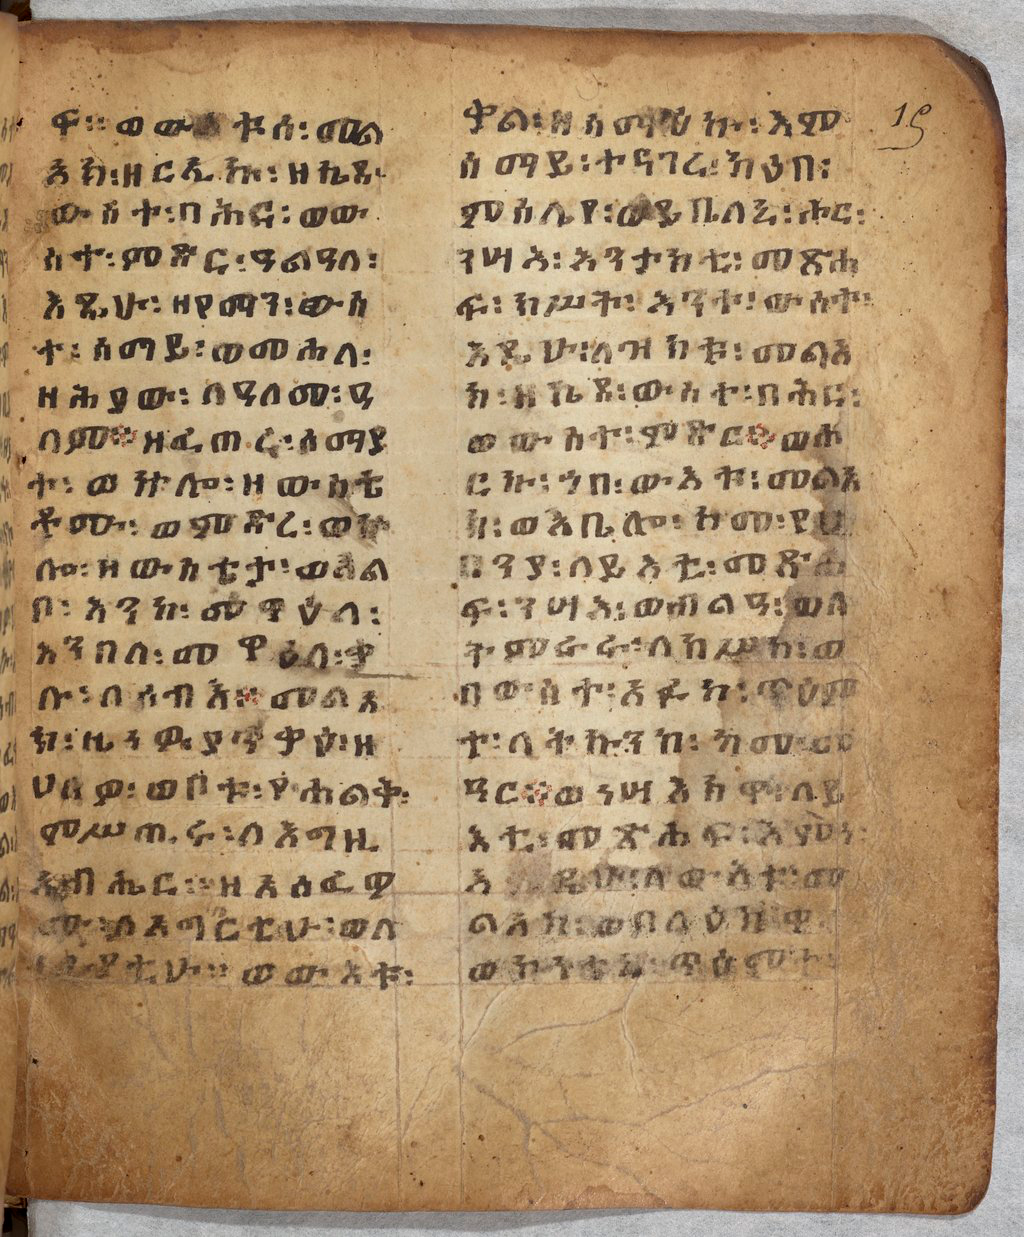 ፍ። ወውእቱሰ፡ መል
አክ፡ ዘርኢኩ፡ ዘኬደ፡
ውስተ፡ በሕር፡ ወው
ስተ፡ ምድር፡ ዓልዓለ፡
እዴሁ፡ ዘየማን፡ ውስ
ተ፡ ሰማይ፡ ወመሐለ፡
ዘሕያው፡ ለዓለመ፡ ዓ
ለም። ዘፈጠረ፡ ሰማያ
ተ፡ ወኵሎ፡ ዘውስቴ
ቶሙ፡ ወምድረ፡ ወኵ
ሎ፡ ዘውስቴታ፡ ወአል
ቦ፡ እንከ፡ መዋዕለ፡
እንበለ፡ መዋዕለ፡ ቃ
ሉ፡ ለሰብእ። መልአ
ክ፡ ዜነዎ፡ ያንቃዕ፡ ዘ
ሀለዎ፡ ወቦቱ፡ የሐልቅ፡
ምሥጢሩ፡ ለእግዚ
አብሔር። ዘአሰፈዎ
ሙ፡ ለአግርቲሁ፡ ወለ
ነቢያቲሁ። ወውእቱ፡
ቃል፡ ዘሰማዕኩ፡ እም
ሰማይ፡ ተናገረ፡ ኀቤየ፡
ምስሌየ፡ ወይቤለኒ፡ ሑር፡
ንሣእ፡ እንታክቲ፡ መጽሐ
ፈ፡ ክሥት፡ እንተ፡ ውስተ፡
እዴሁ፡ ለዝክቱ፡ መልአ
ክ፡ ዘኬደ፡ ውስተ፡ በሕር፡
ወውስተ፡ ምድር። ወሐ
ርኩ፡ ኀበ፡ ውእቱ፡ መልአ
ክ፡ ወእቤሎ፡ ከመ፡ የሀ
በንያ፡ ለይእቲ፡ መጽሐ
ፍ፡ ንሣእ፡ ወብልዓ፡ ወለ
ትምረራ፡ ለከሥከ፡ ወ
በውስተ፡ አፉከ፡ ጥዕም
ተ፡ ለትኩንከ፡ ከመ፡ መ
ዓር። ወነሣእክዋ፡ ለይ
እቲ፡ መጽሐፍ፡ እምነ፡
እዴሁ፡ ለውእቱ፡ መ
ልአክ፡ ወበላዕክዋ፡
ወኮነተኒ፡ ጥዕምተ፡